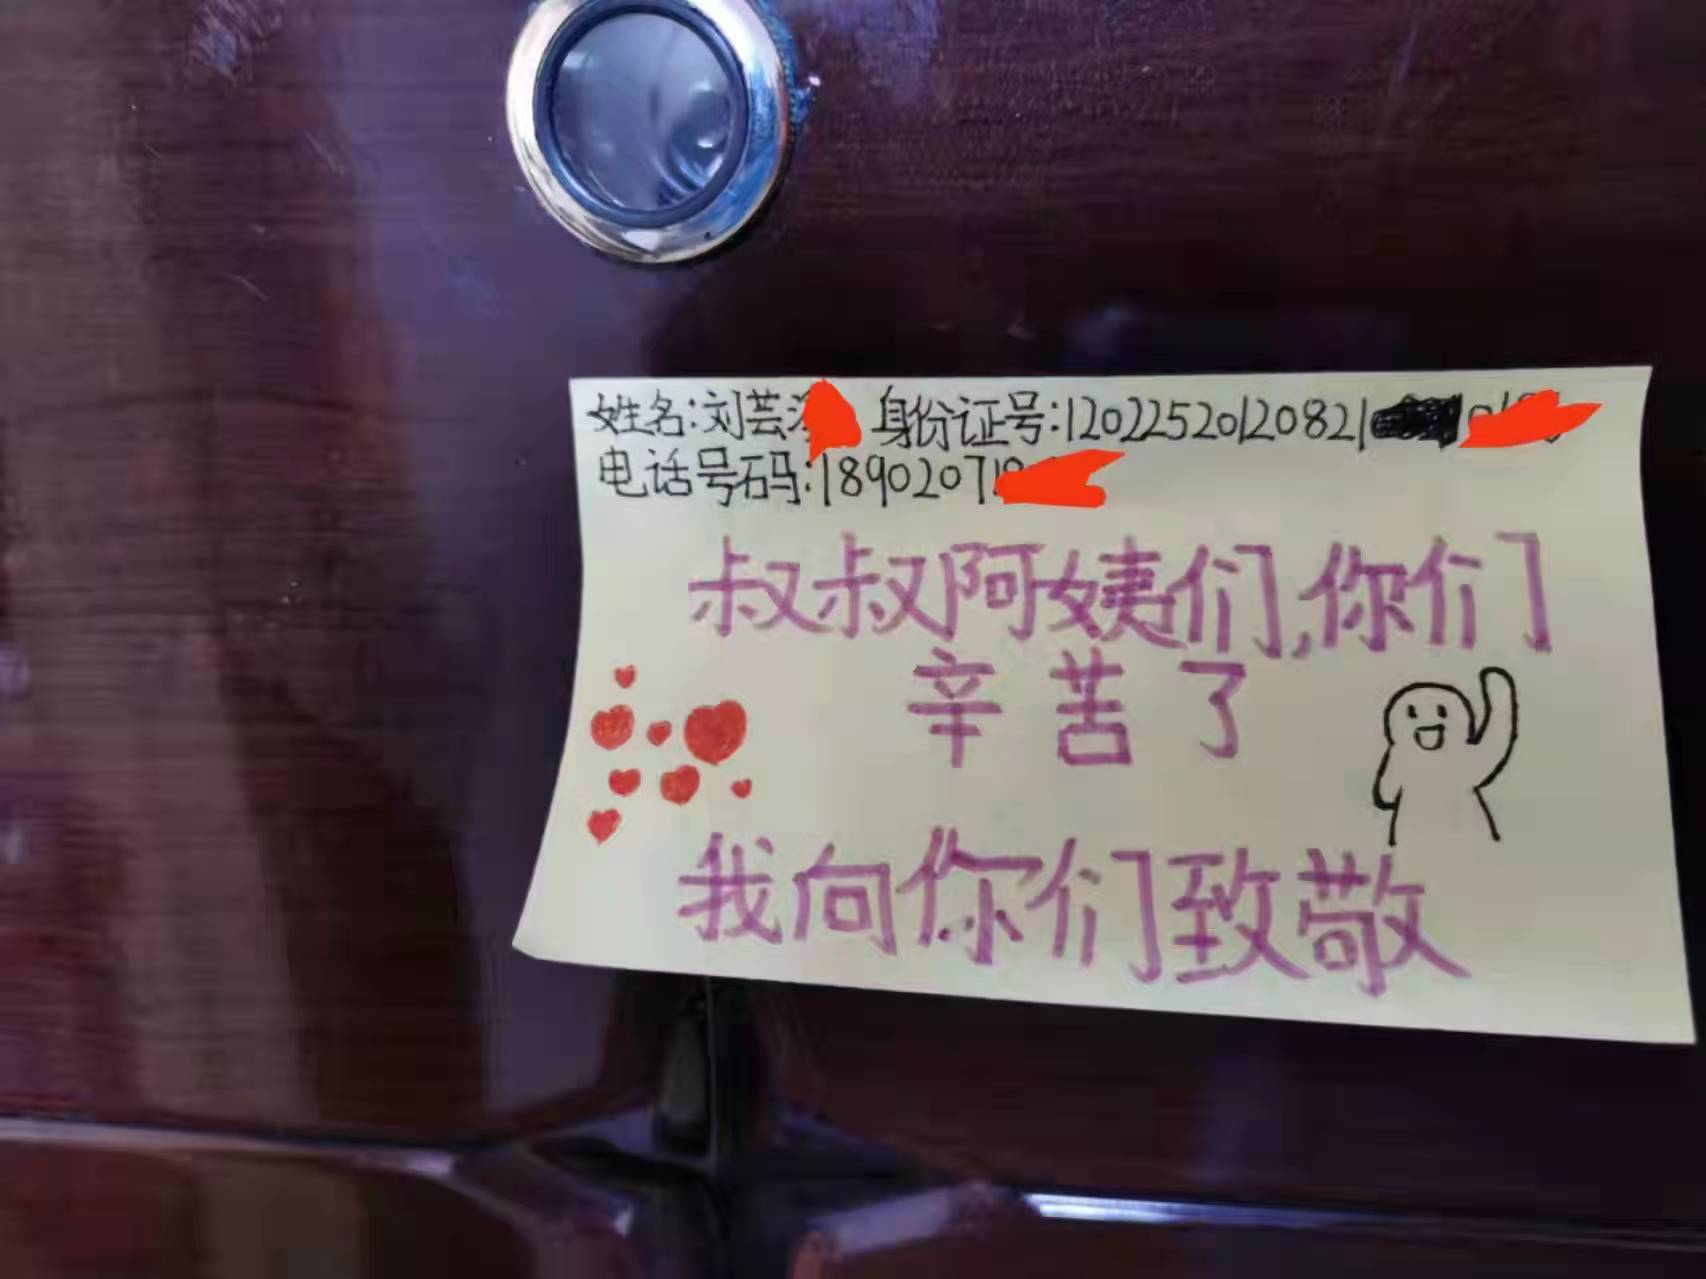 姓名:刘芸 身份证号:12022520120821
电话号码:18902071
叔叔阿姨们,你们
辛苦了
我向你们致敬